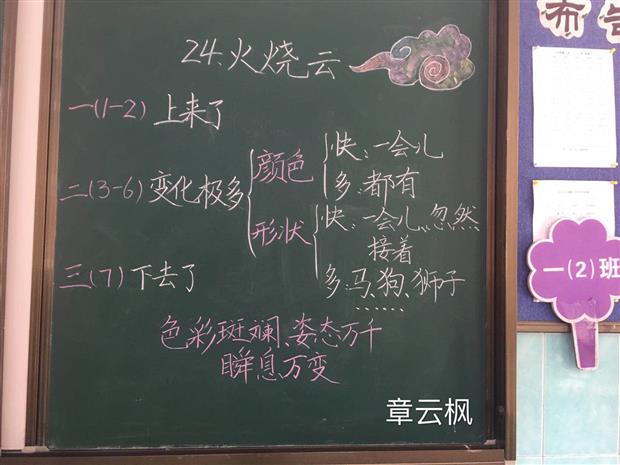 24、火烧云
一(1-2) 上来了
二(3-6) 变化极多
颜色
快：一会儿
多：都有
形状
快：一会儿、忽然
接着
三(7) 下去了
多：马、狗、狮子
......
色彩斑斓、姿态万千
瞬息万变
章云枫
布告
一(2)班